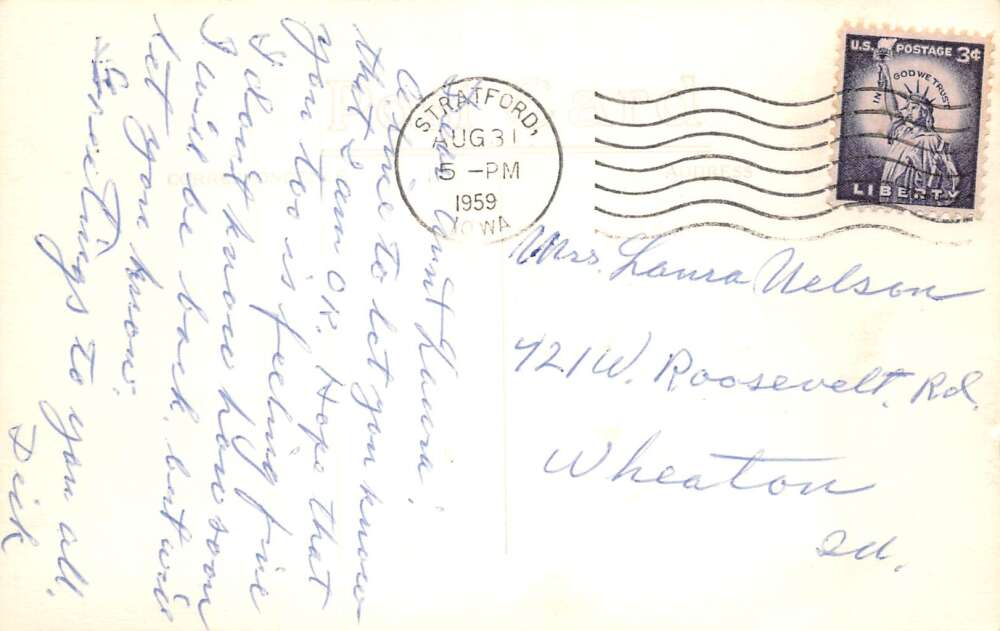 Post Card
CORRESPONDENCE
ADDRESS
STRATFORD,
AUG 31
5 - PM
1959
IOWA
U.S. POSTAGE 3¢
IN GOD WE TRUST
LIBERTY
Dear Aunt Laura,
A line to let you know
that I am OK. Hope that
you too is feeling fine
I don't know how soon
I will be back, but will
let you know.
Greetings to you all.
Dick
Mrs. Laura Nelson
421 W. Roosevelt. Rd.
Wheaton
Ill.